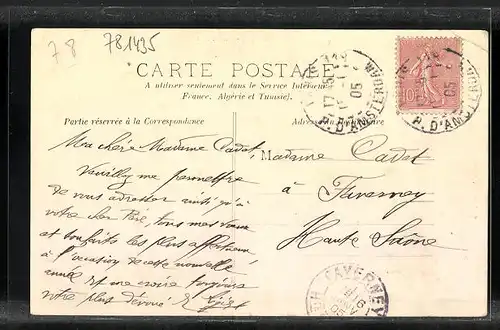 78
781435
CARTE POSTALE
A utiliser seulement dans le Service Intérieur
France, Algérie et Tunisie).
Partie réservée à la Correspondance
R. D'AMSTERDAM
05
R. D'AMSTERDAM
05
Ma chère Madame Cadet,
Veuillez me permettre
de vous adresser ainsi qu'à
votre cher Père, tous mes vœux
et souhaits les plus affectueux
à l'occasion de cette nouvelle
année
votre plus dévoué
Madame Cadet
à Faverney
Haute Saône
FAVERNEY